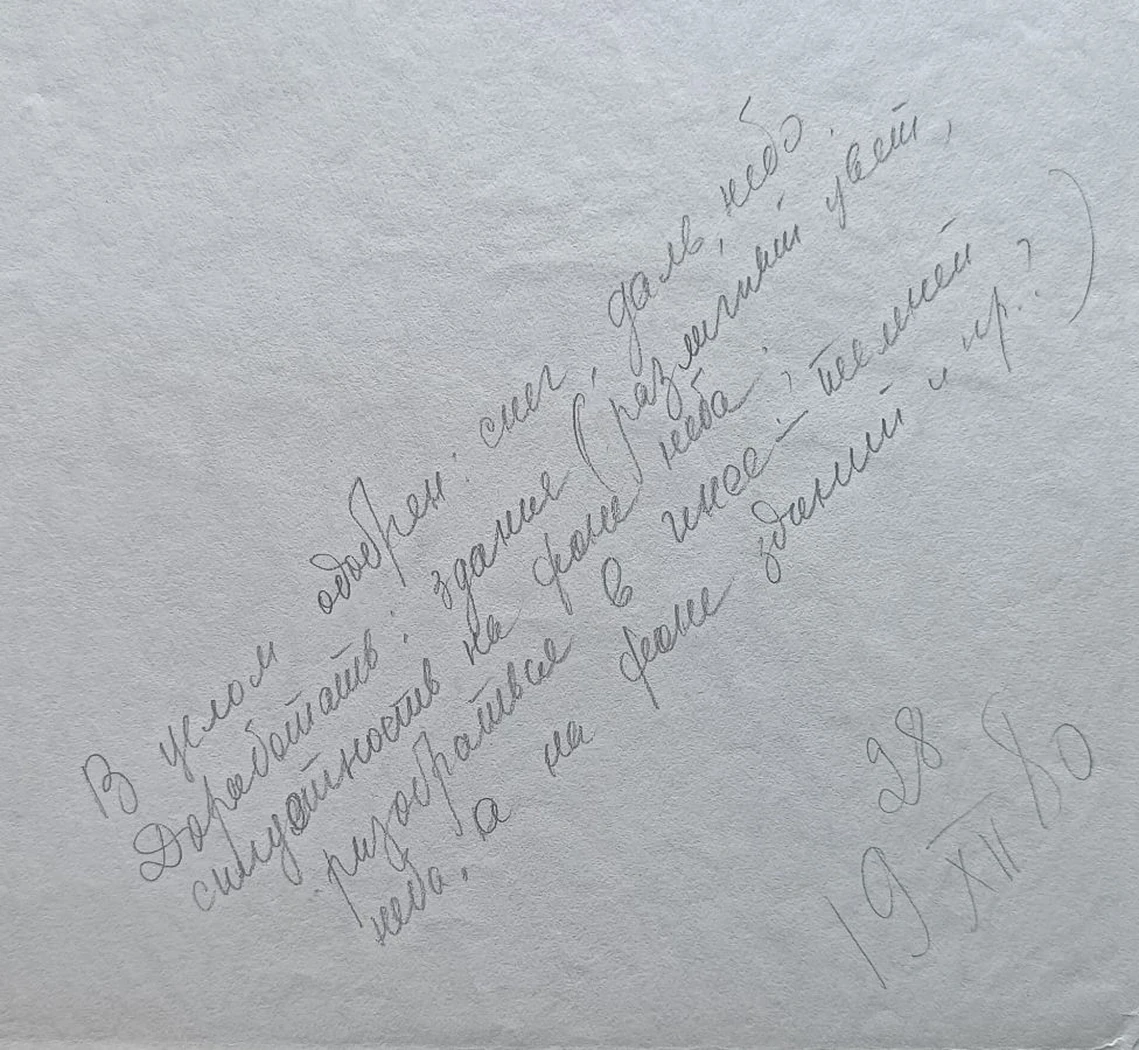 В целом одобрен: снег, даль, небо.
Доработать: здание (различный цвет,
силуэтность на фоне неба;
разобраться в инее – темней
неба, а на фоне зданий и пр.?)
28
19 XII 80